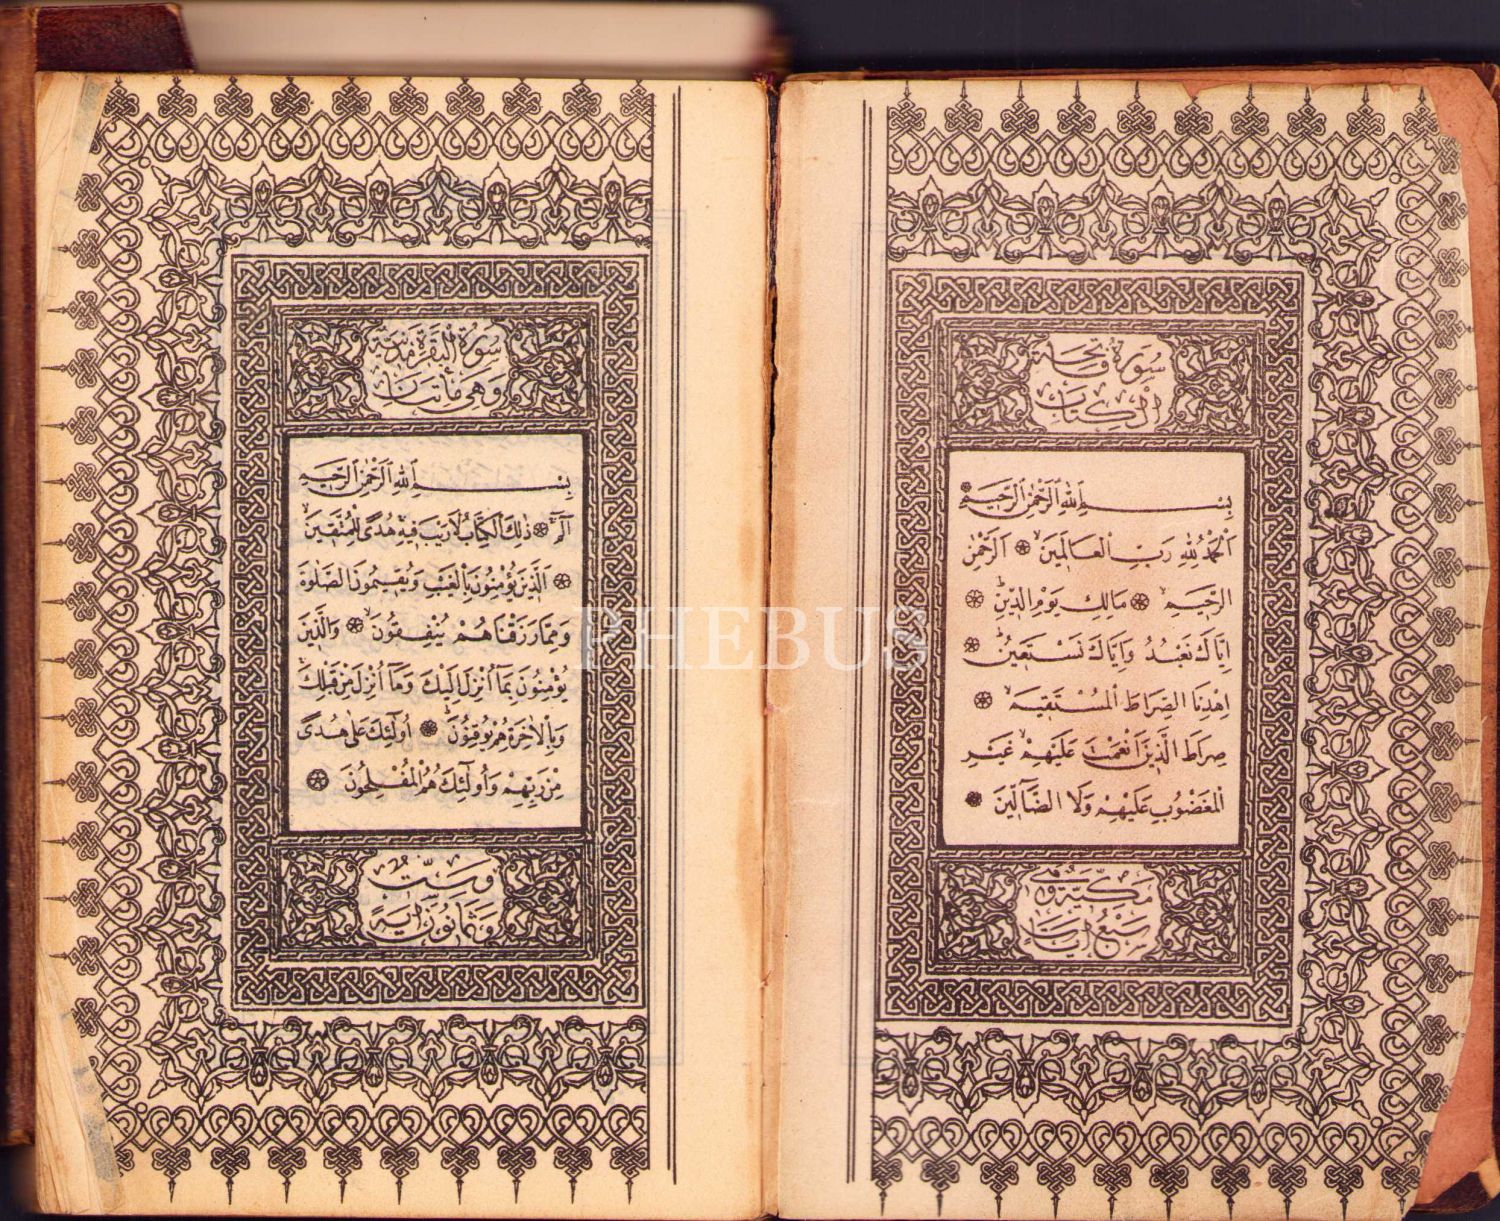 سورة فاتحة
الكتاب
بِسْمِ اللهِ الرَّحْمٰنِ الرَّحِيمِ
اَلْحَمْدُ لِلّٰهِ رَبِّ الْعَالَمِينَ اَلرَّحْمٰنِ
الرَّحِيمِ مَالِكِ يَوْمِ الدِّينِ
اِيَّاكَ نَعْبُدُ وَاِيَّاكَ نَسْتَعِينُ
اِهْدِنَا الصِّرَاطَ الْمُسْتَقِيمَ
صِرَاطَ الَّذِينَ اَنْعَمْتَ عَلَيْهِمْ غَيْرِ
الْمَغْضُوبِ عَلَيْهِمْ وَلَا الضَّالِّينَ
مكية وهى
سبع ايات
سورة البقرة مدنية
وهى مائتان
بِسْمِ اللهِ الرَّحْمٰنِ الرَّحِيمِ
الٓمٓ ذٰلِكَ الْكِتَابُ لَا رَيْبَ فِيهِ هُدًى لِلْمُتَّقِينَ
اَلَّذِينَ يُؤْمِنُونَ بِالْغَيْبِ وَيُقِيمُونَ الصَّلٰوةَ
وَمِمَّا رَزَقْنَاهُمْ يُنْفِقُونَ وَالَّذِينَ
يُؤْمِنُونَ بِمَٓا اُنْزِلَ اِلَيْكَ وَمَٓا اُنْزِلَ مِنْ قَبْلِكَ
وَبِالْاٰخِرَةِ هُمْ يُوقِنُونَ اُولٰٓئِكَ عَلٰى هُدًى
مِنْ رَبِّهِمْ وَاُولٰٓئِكَ هُمُ الْمُفْلِحُونَ
وست
وثمانون اية
PHEBUS